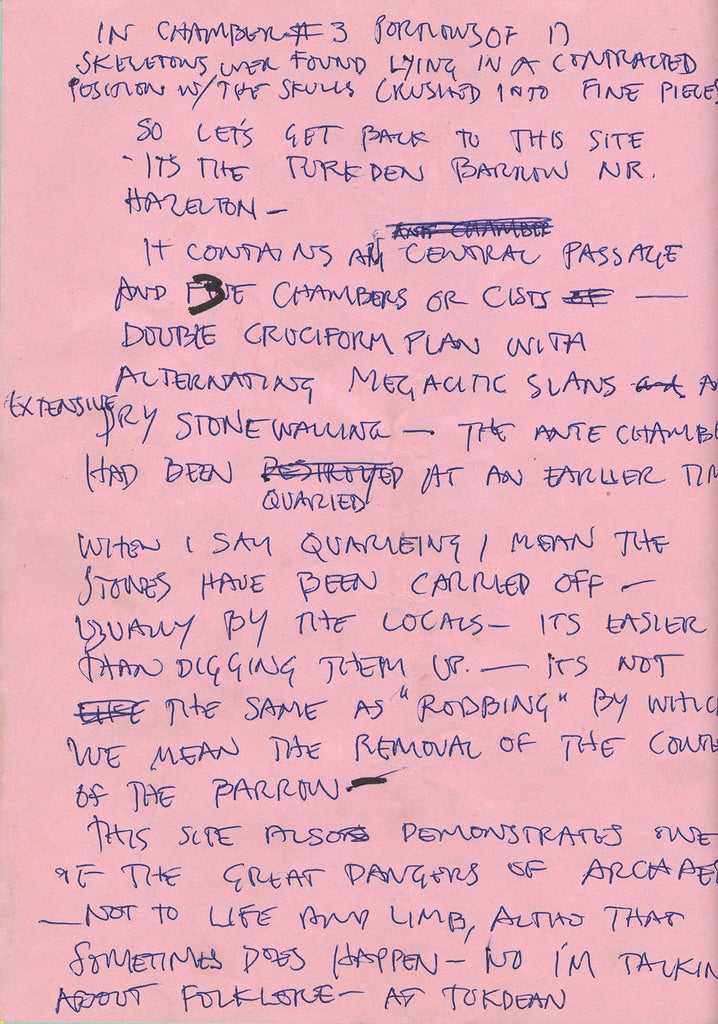 IN CHAMBER # 3 PORTIONS OF 17
SKELETONS WER FOUND LYING IN A CONTRACTED
POSITION W/ THE SKULLS CRUSHED INTO FINE PIECES
SO LET'S GET BACK TO THIS SITE
- ITS THE TURKDEN BARROW NR.
HAZELTON -
IT CONTAINS AN CENTRAL PASSAGE
AND 3 CHAMBERS OR CISTS —
DOUBLE CRUCIFORM PLAN WITH
ALTERNATING MEGALITIC SLABS A
EXTENSIVE
DRY STONE WALLING — THE ANTE CHAMBE
HAD BEEN AT AN EARLIER TIM
QUARIED
WHEN I SAY QUARIEING I MEAN THE
STONES HAVE BEEN CARRIED OFF —
USUALLY BY THE LOCALS — ITS EASIER
THAN DIGGING THEM UP. — ITS NOT
THE SAME AS "ROBBING" BY WHIC
WE MEAN THE REMOVAL OF THE CONTE
OF THE BARROW —
THIS SITE ALSO DEMONSTRATES ONE
OF THE GREAT DANGERS OF ARCHAE
— NOT TO LIFE AND LIMB, ALTHO THAT
SOMETIMES DOES HAPPEN — NO I'M TALKIN
ABOUT FOLKLORE — AT TURKDEAN